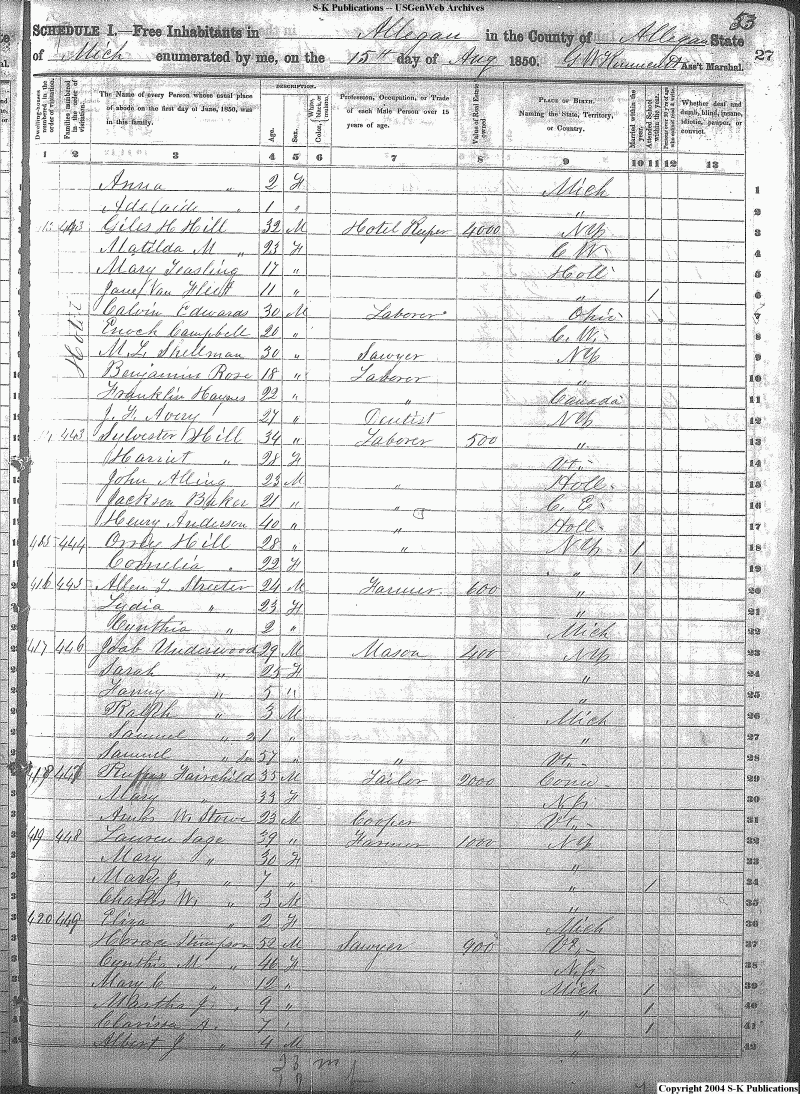 S-K Publications -- USGenWeb Archives
53
SCHEDULE I.—Free Inhabitants in Allegan in the County of Allegan State
of Mich enumerated by me, on the 15th day of Aug 1850. Ass't Marshal. 27
Dwelling-houses numbered in the order of visitation.
Families numbered in the order of visitation.
The Name of every Person whose usual place of abode on the first day of June, 1850, was in this family.
DESCRIPTION.
Age.
Sex.
Color, White, black, or mulatto.
Profession, Occupation, or Trade of each Male Person over 15 years of age.
Value of Real Estate owned
PLACE OF BIRTH. Naming the State, Territory, or Country.
Married within the year.
Attended School within the year.
Persons over 20 y'rs of age who cannot read & write.
Whether deaf and dumb, blind, insane, idiotic, pauper, or convict.
1 2 3 4 5 6 7 8 9 10 11 12 13
Anna " 2 F Mich 1
Adelaide " 1 " " 2
Giles H Hill 32 M Hotel Keeper 4000 NY 3
Matilda M " 23 F C. W. 4
Mary Teasling 17 " Holl 5
Jane Van Fleet 11 " " 1 6
Calvin Edwards 30 M Laborer Ohio 7
Enoch Campbell 20 " C. W. 8
Hotel
M. L. Shellman 30 " Sawyer NY 9
Benjamin Rose 18 " Laborer " 10
Franklin Haynes 22 " " Canada 11
J. F. Avery 27 " Dentist NY 12
443 Sylvester Hill 34 " Laborer 500 " 13
Harriet " 28 F Vt. 14
John Alling 23 M " Holl 15
Jackson Baker 21 " " C. E. 16
Henry Anderson 40 " " Holl 17
444 Orsey Hill 28 " " NY 1 18
Cornelia " 22 F " 1 19
416 445 Allen J. Streeter 24 M Farmer 600 " 20
Lydia " 23 F " 21
Cynthia " 2 " Mich 22
417 446 Joab Underwood 29 M Mason 400 NY 23
Sarah " 25 F " 24
Fanny " 5 " " 25
Ralph " 3 M Mich 26
Samuel " 2d 1 " " 27
Samuel " Sen 57 " " Vt. 28
418 447 Rufus Fairchild 35 M Tailor 2000 Conn 29
Mary " 33 F NY 30
Amos W. Stowe 23 M Cooper Vt. 31
419 448 Lauren Sage 39 " Farmer 1000 NY 32
Mary " 30 F " 33
Mary J. " 7 " " 1 34
Charles W. " 3 M " 35
420 449 Eliza " 2 F Mich 36
Horace Stimpson 52 M Sawyer 900 Vt. 37
Cynthia M " 46 F NY 38
Mary C " 12 " Mich 1 39
Martha J. " 9 " " 1 40
Clarissa A. " 7 " " 1 41
Albert J " 4 M " 42
23 m
f
Copyright 2004 S-K Publications